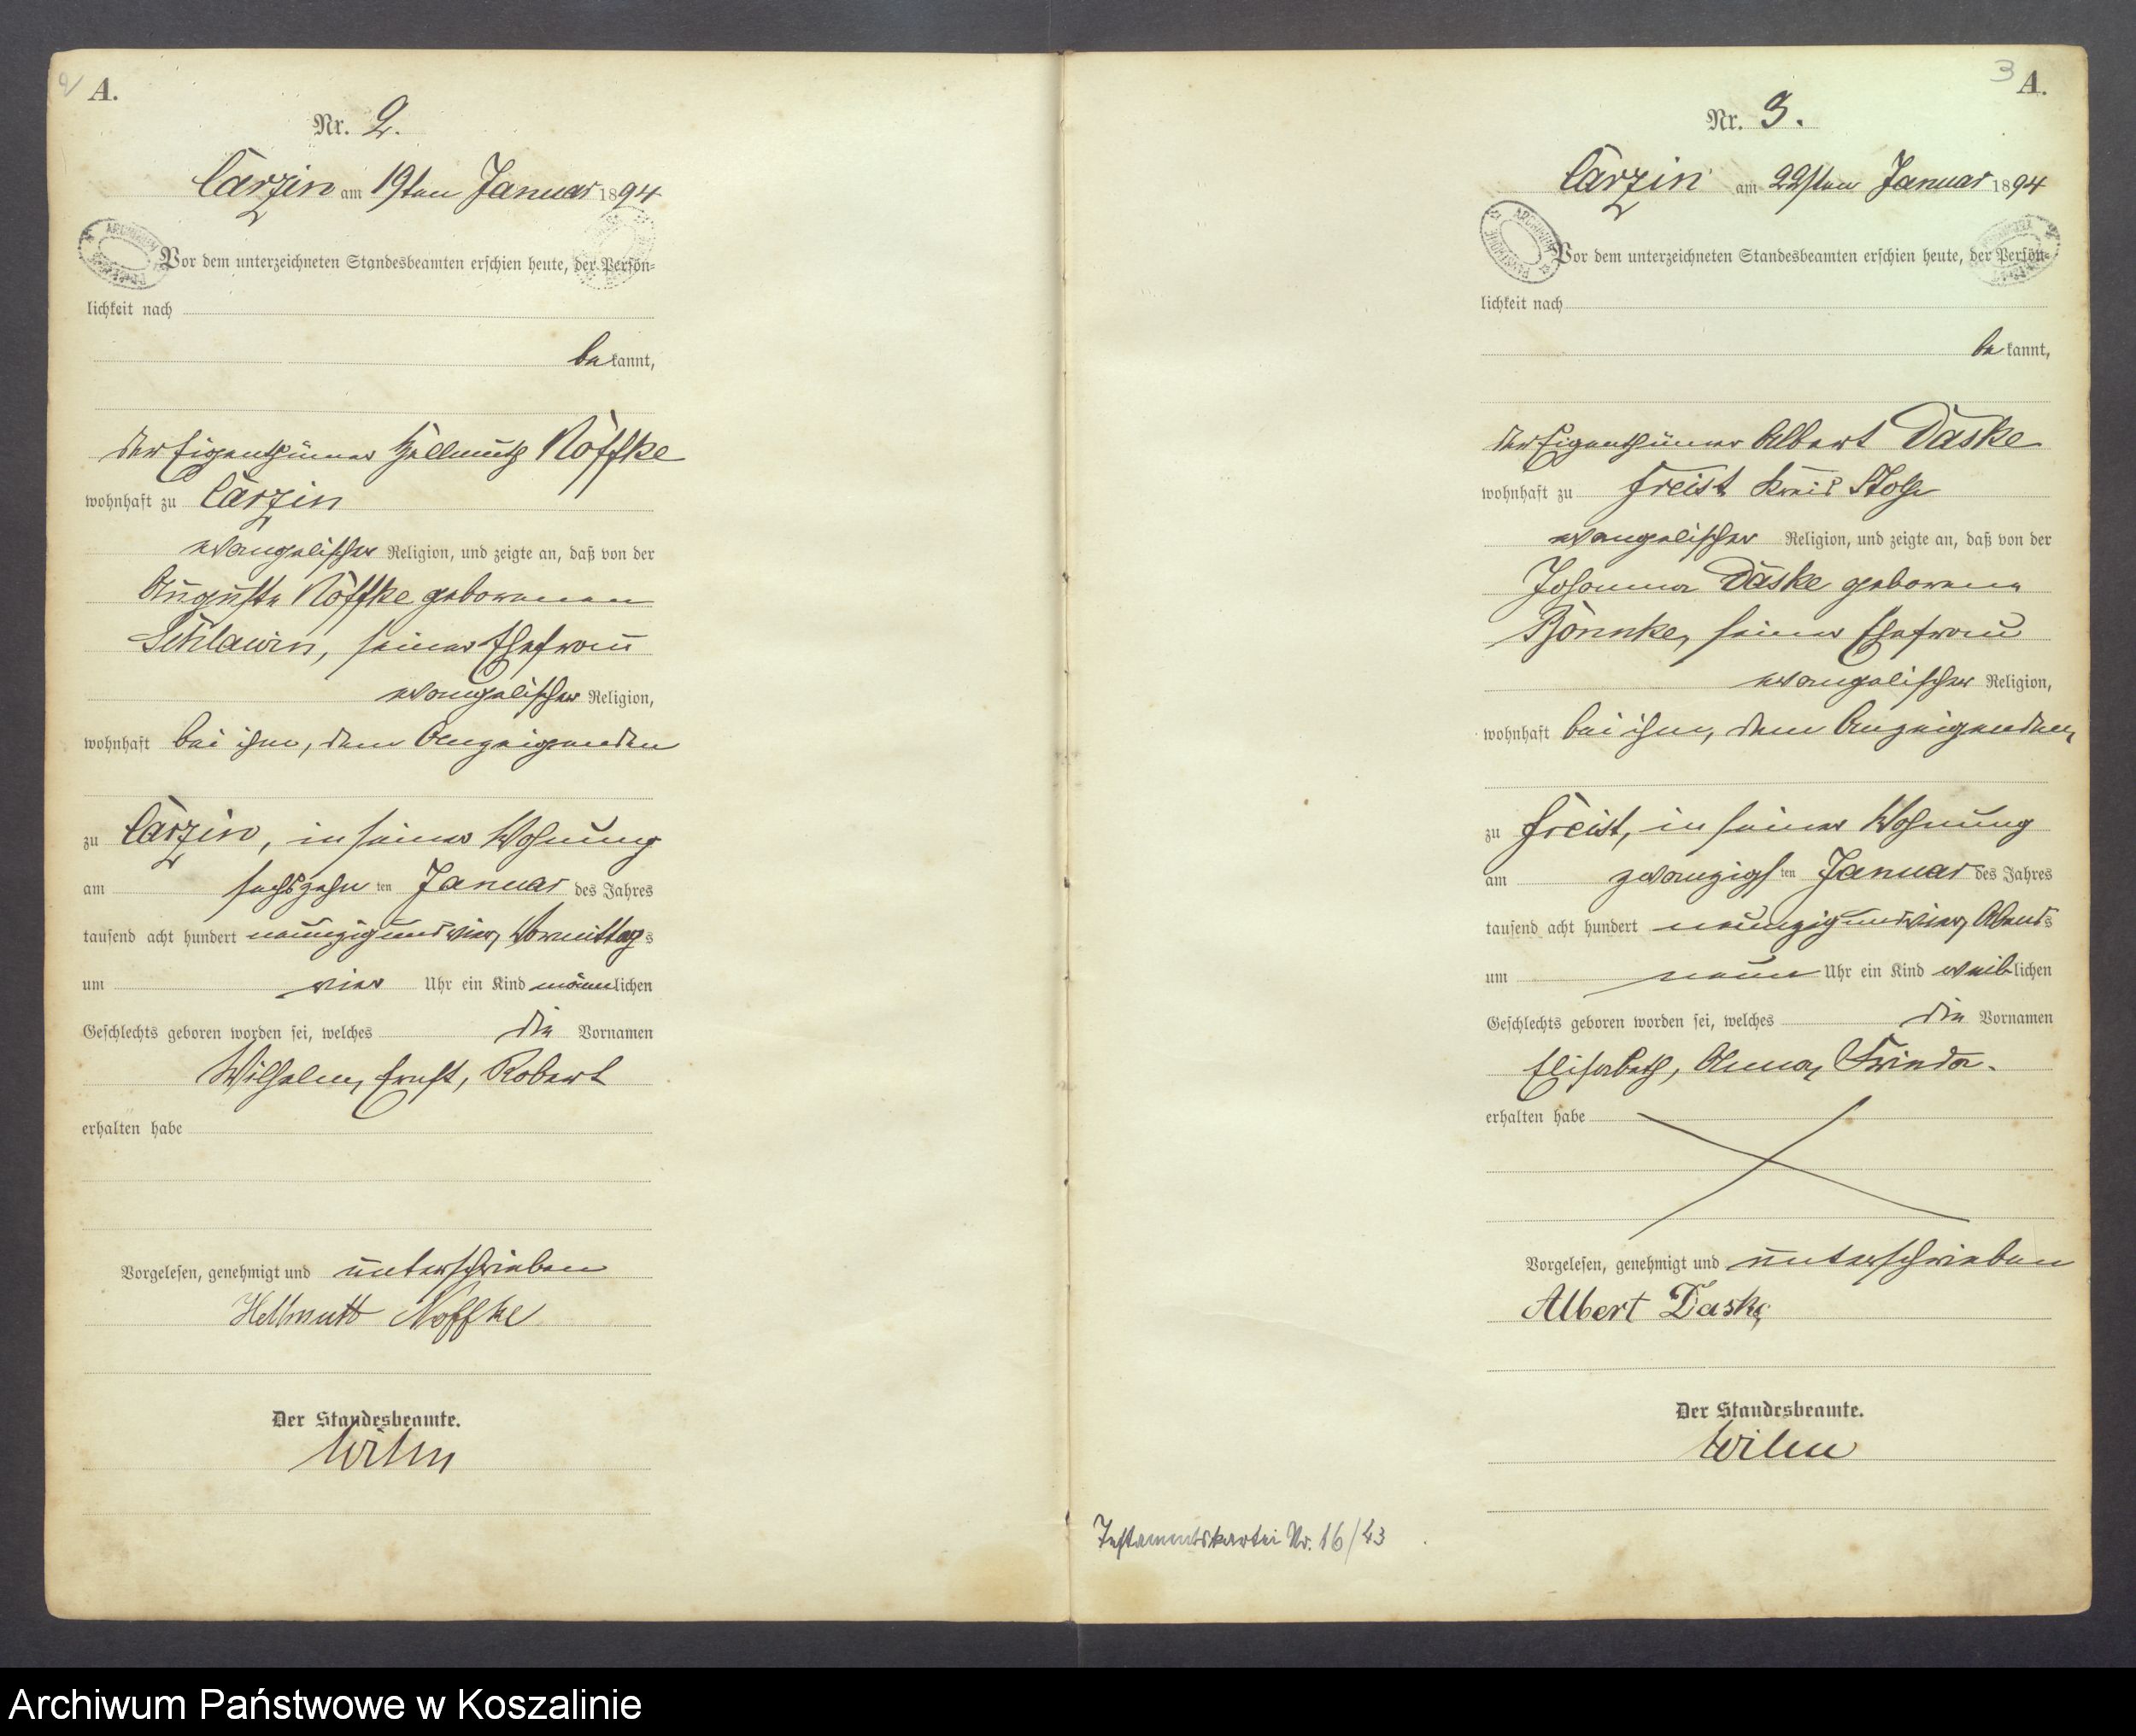 2
A.
Nr. 2.
Carzin am 19ten Januar 1894
Vor dem unterzeichneten Standesbeamten erschien heute, der Persön-
lichkeit nach
bekannt,
der Eigenthümer Hellmuth Noffke
wohnhaft zu Carzin
evangelischer Religion, und zeigte an, daß von der
Auguste Noffke geborenen
Schlawin, seiner Ehefrau
evangelischer Religion,
wohnhaft bei ihm, dem Anzeigenden
zu Carzin, in seiner Wohnung
am sechszehnten Januar des Jahres
tausend acht hundert neunzig und vier, Vormittags
um vier Uhr ein Kind männlichen
Geschlechts geboren worden sei, welches die Vornamen
Wilhelm, Ernst, Robert
erhalten habe
Vorgelesen, genehmigt und unterschrieben
Hellmuth Noffke
Der Standesbeamte.
Wilm
3
A.
Nr. 3.
Carzin am 22sten Januar 1894
Vor dem unterzeichneten Standesbeamten erschien heute, der Persön-
lichkeit nach
bekannt,
der Eigenthümer Albert Daske
wohnhaft zu Freist Kreis Stolp
evangelischer Religion, und zeigte an, daß von der
Johanna Daske geborene
Bönnke, seiner Ehefrau
evangelischer Religion,
wohnhaft bei ihm, dem Anzeigenden,
zu Freist, in seiner Wohnung
am zwanzigsten Januar des Jahres
tausend acht hundert neunzig und vier, Abends
um neun Uhr ein Kind weiblichen
Geschlechts geboren worden sei, welches die Vornamen
Elisabeth, Anna, Frieda.
erhalten habe
Vorgelesen, genehmigt und unterschrieben
Albert Daske
Der Standesbeamte.
Wilm
Testamentskartei Nr. 16/43
Archiwum Państwowe w Koszalinie